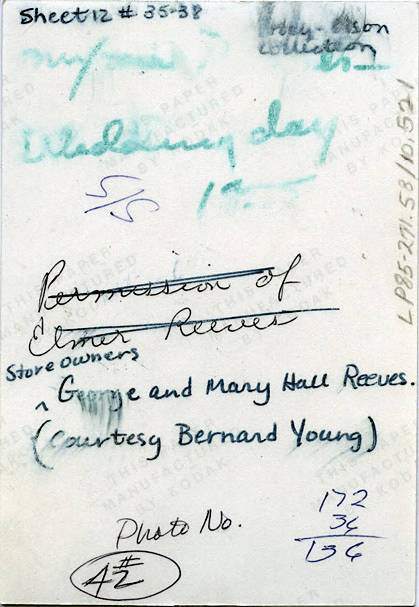 Sheet 12 # 35-38
Olson
Collection
Wedding day
5/5
LP85-271.53/10.521
Permission of
Elmer Reeves
Store owners
^ George and Mary Hall Reeves.
(Courtesy Bernard Young)
Photo No.
#
42
172
36
136
THIS PAPER
MANUFACTURED
BY KODAK